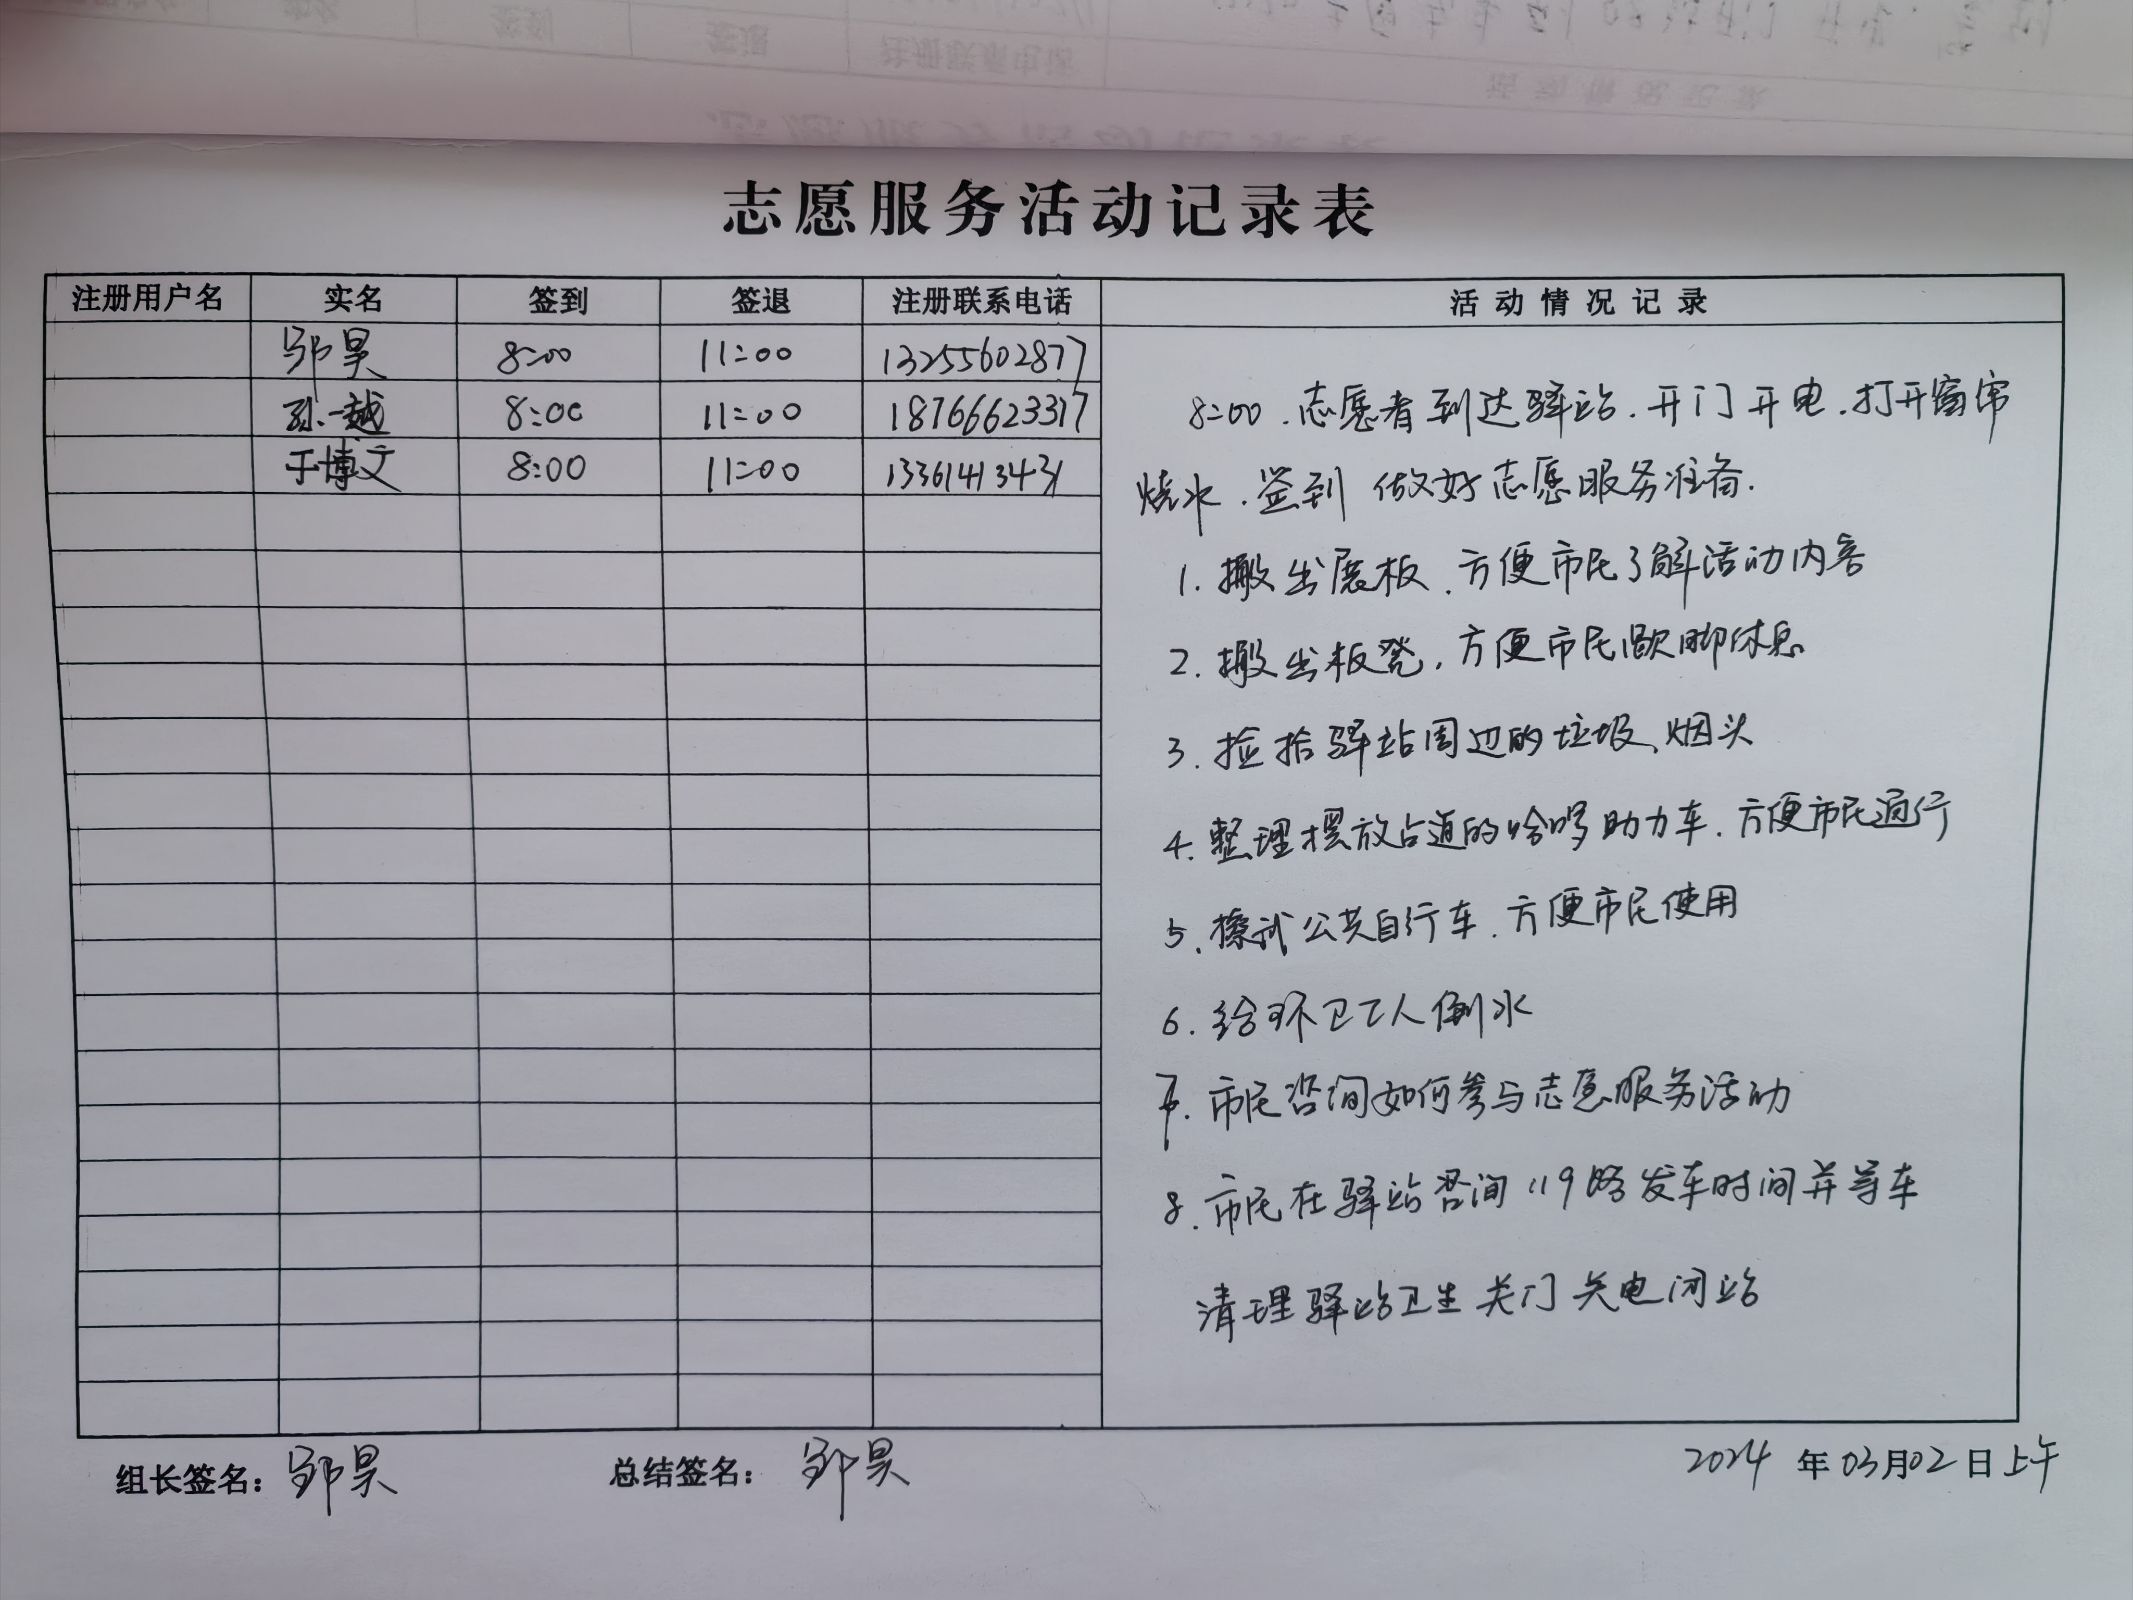 志愿服务活动记录表
注册用户名 实名 签到 签退 注册联系电话 活动情况记录
邹昊 8:00 11:00 13255602877
孙一越 8:00 11:00 18766623317
于博文 8:00 11:00 13361413431
8:00.志愿者到达驿站.开门开电.打开窗帘
烧水.签到 做好志愿服务准备.
1.搬出展板.方便市民了解活动内容
2.搬出板凳,方便市民歇脚休息
3.捡拾驿站周边的垃圾、烟头
4.整理摆放占道的哈啰助力车.方便市民通行
5.擦试公共自行车.方便市民使用
6.给环卫工人倒水
7.市民咨询如何参与志愿服务活动
8.市民在驿站咨询119路发车时间并等车
清理驿站卫生关门关电闭站
组长签名:邹昊 总结签名:邹昊 2024年03月02日上午